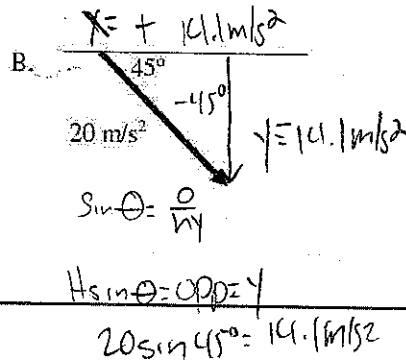 X = + 14.1m/s²
B.
45°
-45°
20 m/s²
y = 14.1m/s²
Sin θ = O/hy
H sin θ = opp = y
20 sin 45° = 14.1m/s2